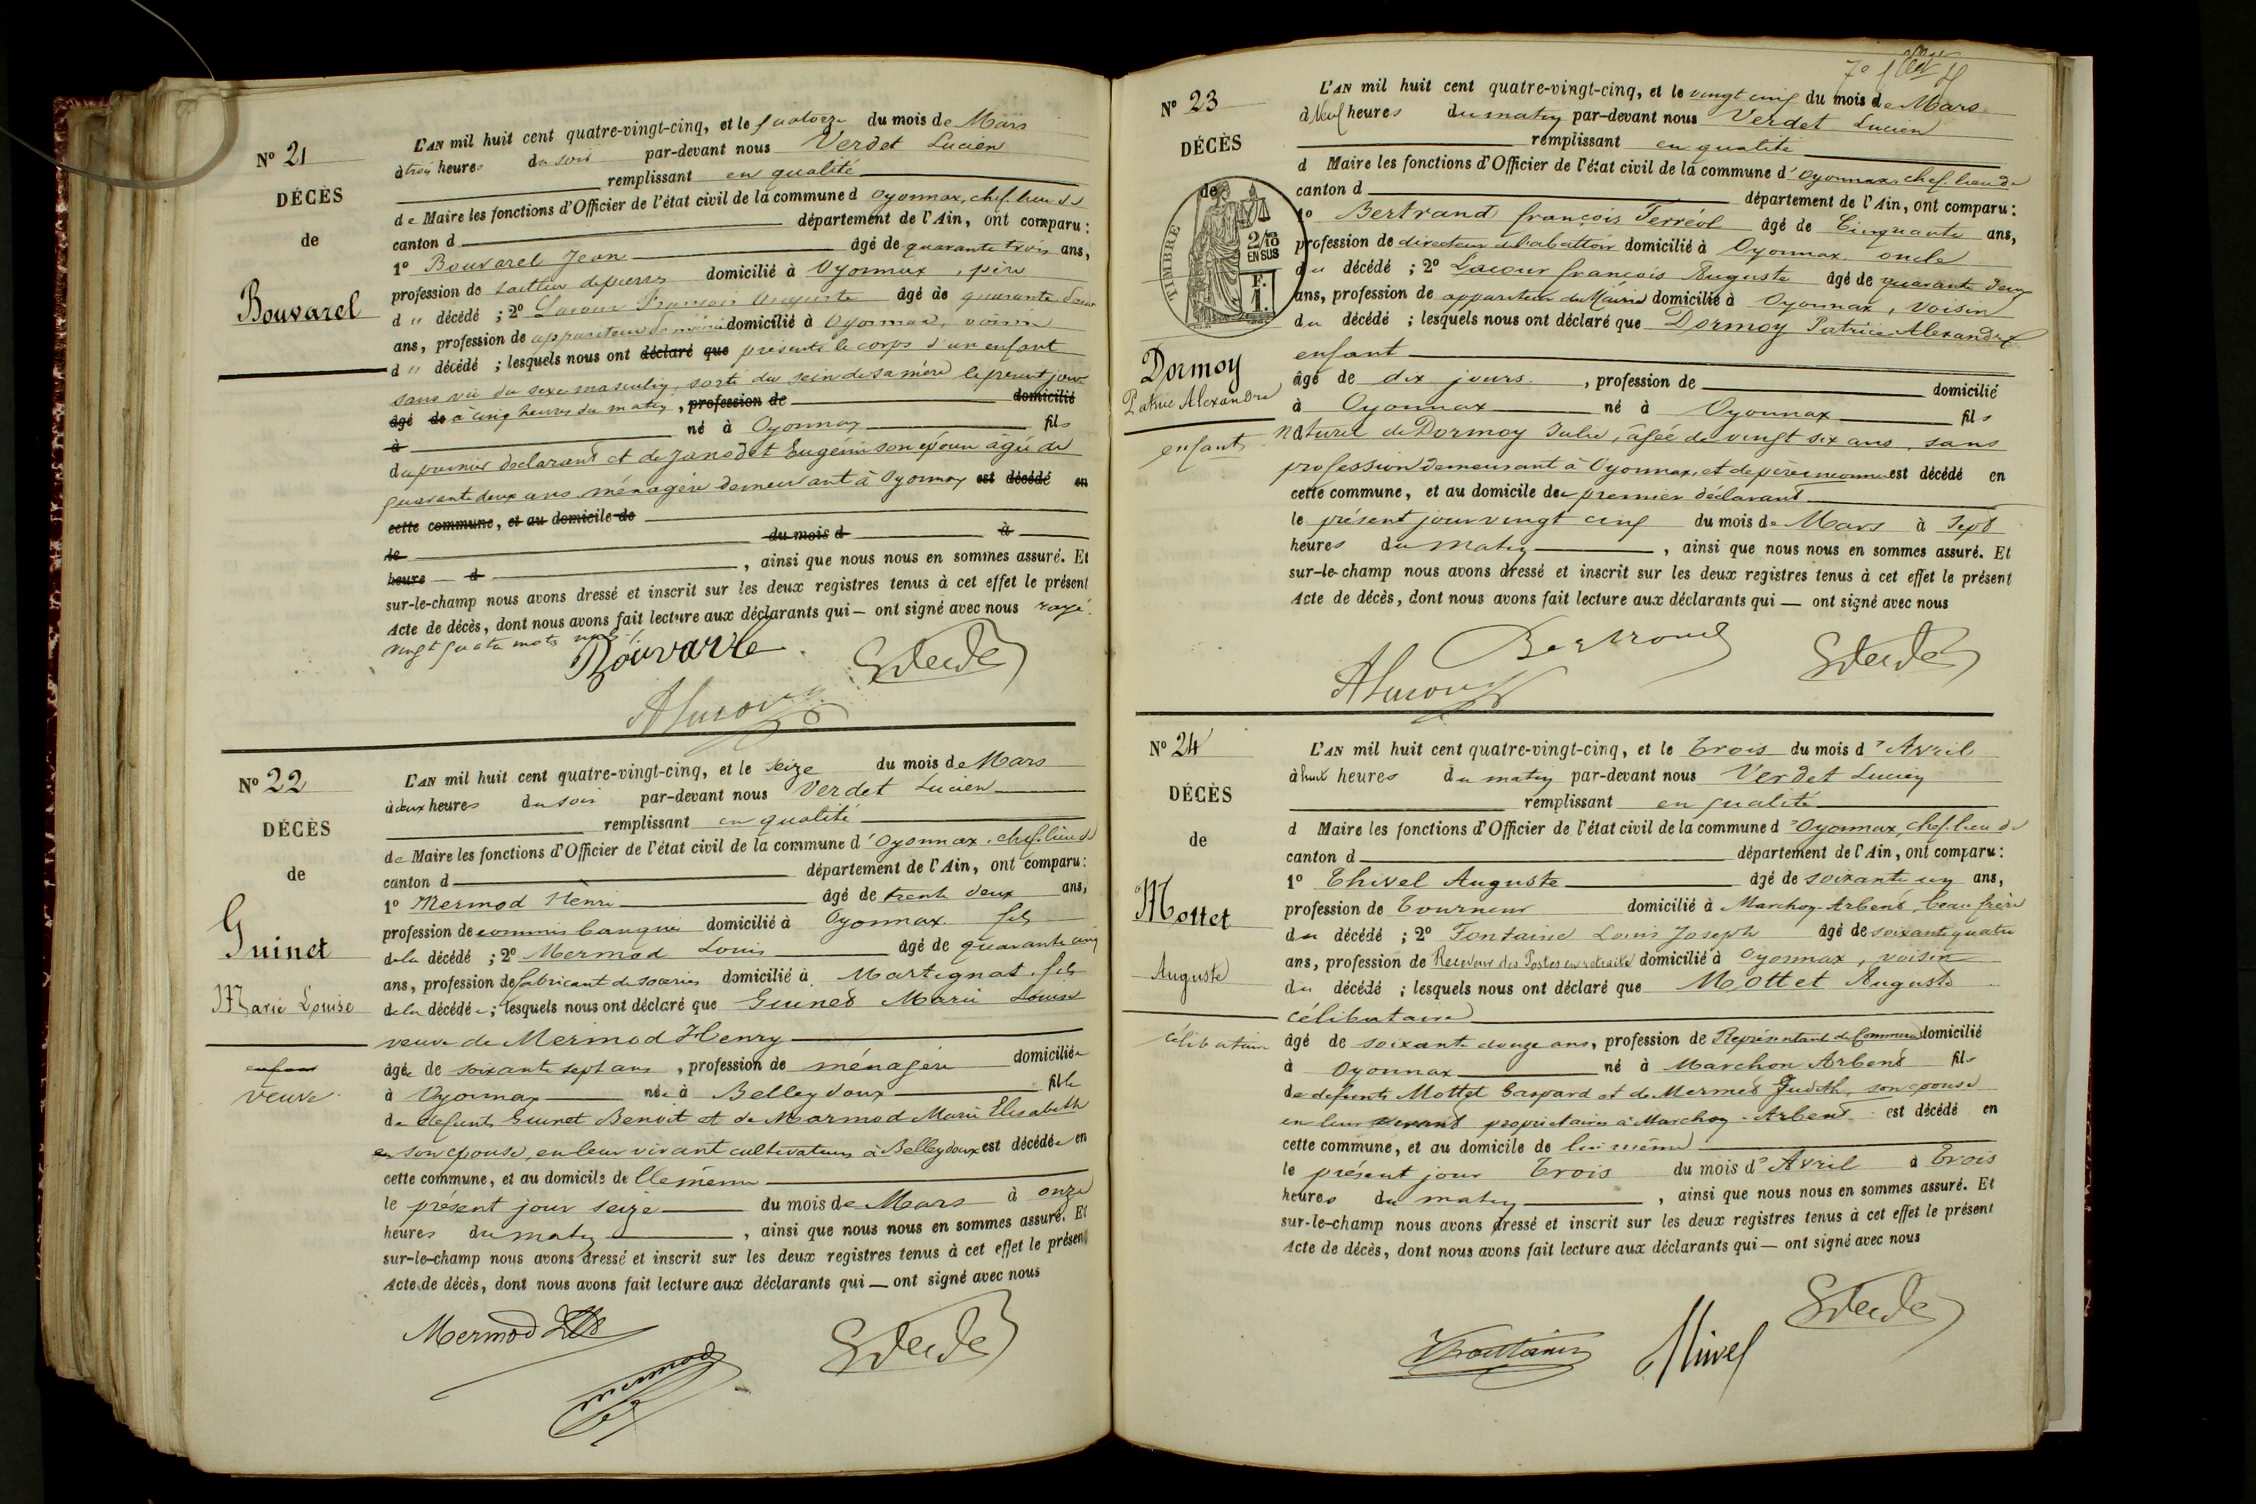 Nº 21
DÉCÈS
de
Bouvarel
L'AN mil huit cent quatre-vingt-cinq, et le quatorze du mois de Mars
à trois heures du soir par-devant nous Verdet Lucien
remplissant en qualité
de Maire les fonctions d'Officier de l'état civil de la commune d Oyonnax, chef-lieu de
canton d département de l'Ain, ont comparu :
1º Bouvarel Jean âgé de quarante trois ans,
profession de domicilié à Oyonnax, père
d " décédé ; 2º Lacour François Auguste âgé de quarante deux
ans, profession de appariteur de mairie domicilié à Oyonnax, voisin
d " décédé ; lesquels nous ont déclaré que présenté le corps d'un enfant
sans vie du sexe masculin, sorti du sein de sa mère le présent jour
âgé de à cinq heures du matin, profession de domicilié
à né à Oyonnax fils
du premier déclarant et de Janodet Eugénie son épouse âgée de
quarante deux ans ménagère demeurant à Oyonnax est décédé en
cette commune, et au domicile de
le du mois d à
heure d , ainsi que nous nous en sommes assuré. Et
sur-le-champ nous avons dressé et inscrit sur les deux registres tenus à cet effet le présent
Acte de décès, dont nous avons fait lecture aux déclarants qui — ont signé avec nous rayé
vingt quatre mots nuls
Bouvarel
ALacour
Verdet
Nº 22
DÉCÈS
de
Guinet
Marie Louise
enfant
veuve
L'AN mil huit cent quatre-vingt-cinq, et le seize du mois de Mars
à deux heures du soir par-devant nous Verdet Lucien
remplissant en qualité
de Maire les fonctions d'Officier de l'état civil de la commune d'Oyonnax, chef-lieu de
canton d département de l'Ain, ont comparu :
1º Mermod Henri âgé de trente deux ans,
profession de commis banquier domicilié à Oyonnax fils
de la décédé ; 2º Mermod Louis âgé de quarante cinq
ans, profession de fabricant de soieries domicilié à Martignat, fils
de la décédée ; lesquels nous ont déclaré que Guinet Marie Louise
veuve de Mermod Henry
âgée de soixante sept ans, profession de ménagère domiciliée
à Oyonnax née à Belleydoux fille
de défunts Guinet Benoit et de Marmod Marie Elisabeth
son épouse, en leur vivant cultivateurs à Belleydoux est décédée en
cette commune, et au domicile de elle même
le présent jour seize du mois de Mars à onze
heures du matin , ainsi que nous nous en sommes assuré. Et
sur-le-champ nous avons dressé et inscrit sur les deux registres tenus à cet effet le présent
Acte de décès, dont nous avons fait lecture aux déclarants qui — ont signé avec nous
Mermod
mermod
Verdet
7e
Nº 23
DÉCÈS
de
TIMBRE
2/10
EN SUS
F.
1.
Dormoy
Patrice Alexandre
enfant
L'AN mil huit cent quatre-vingt-cinq, et le vingt cinq du mois de Mars
à Neuf heures du matin par-devant nous Verdet Lucien
remplissant en qualité
d Maire les fonctions d'Officier de l'état civil de la commune d'Oyonnax, chef-lieu de
canton d département de l'Ain, ont comparu :
1º Bertrand françois Ferréol âgé de Cinquante ans,
profession de directeur de l'abattoir domicilié à Oyonnax oncle
du décédé ; 2º Lacour françois Auguste âgé de quarante deux
ans, profession de appariteur de Mairie domicilié à Oyonnax, voisin
du décédé ; lesquels nous ont déclaré que Dormoy Patrice Alexandre
enfant
âgé de dix jours, profession de domicilié
à Oyonnax né à Oyonnax fils
naturel de Dormoy Julie, âgée de vingt six ans, sans
profession demeurant à Oyonnax, et de père inconnu est décédé en
cette commune, et au domicile de premier déclarant
le présent jour vingt cinq du mois de Mars à Sept
heures du matin , ainsi que nous nous en sommes assuré. Et
sur-le-champ nous avons dressé et inscrit sur les deux registres tenus à cet effet le présent
Acte de décès, dont nous avons fait lecture aux déclarants qui — ont signé avec nous
Bertrand
ALacour
Verdet
Nº 24
DÉCÈS
de
Mottet
Auguste
célibataire
L'AN mil huit cent quatre-vingt-cinq, et le Trois du mois d'Avril
à huit heures du matin par-devant nous Verdet Lucien
remplissant en qualité
d Maire les fonctions d'Officier de l'état civil de la commune d'Oyonnax, chef-lieu de
canton d département de l'Ain, ont comparu :
1º Thivel Auguste âgé de soixante un ans,
profession de Tourneur domicilié à Marchon-Arbent, beau frère
du décédé ; 2º Fontaine Louis Joseph âgé de soixante quatre
ans, profession de Receveur des Postes en retraite domicilié à Oyonnax, voisin
du décédé ; lesquels nous ont déclaré que Mottet Auguste
célibataire
âgé de soixante douze ans, profession de Représentant de Commerce domicilié
à Oyonnax né à Marchon Arbent fils
de défunts Mottet Gaspard et de Mermet Judith, son épouse
en leur vivant propriétaires à Marchon-Arbent est décédé en
cette commune, et au domicile de lui même
le présent jour Trois du mois d'Avril à Trois
heures du matin , ainsi que nous nous en sommes assuré. Et
sur-le-champ nous avons dressé et inscrit sur les deux registres tenus à cet effet le présent
Acte de décès, dont nous avons fait lecture aux déclarants qui — ont signé avec nous
Fontaine
Thivel
Verdet